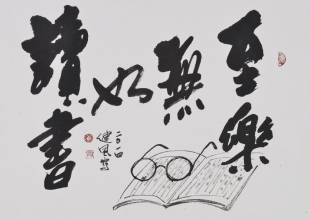 至樂
無
如
讀書
二〇一四
健風寫